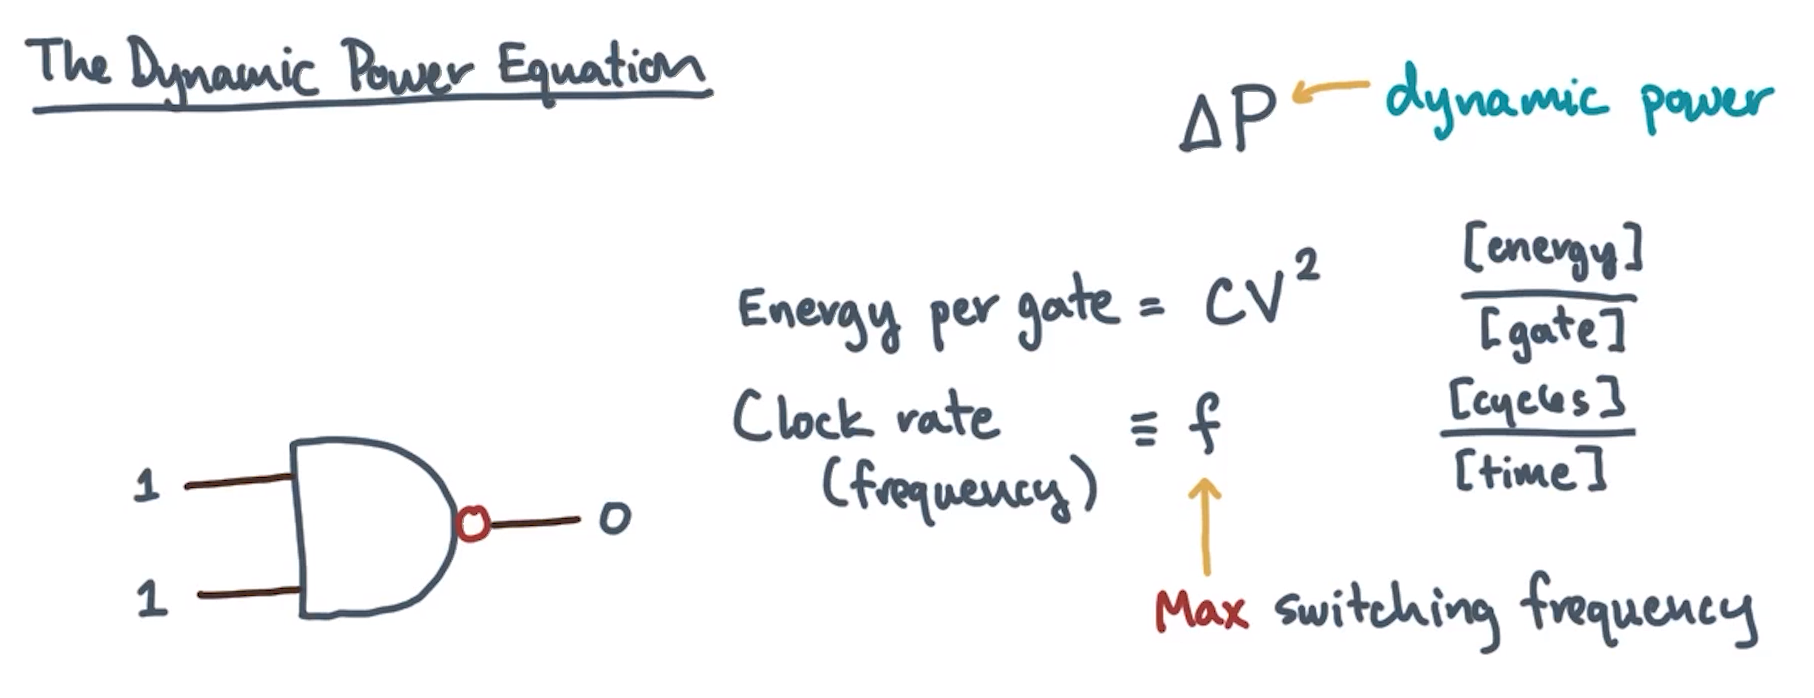 The Dynamic Power Equation
ΔP dynamic power
Energy per gate = CV² [energy]
[gate]
Clock rate ≡ f [cycles]
(frequency) [time]
1
0
1
Max switching frequency